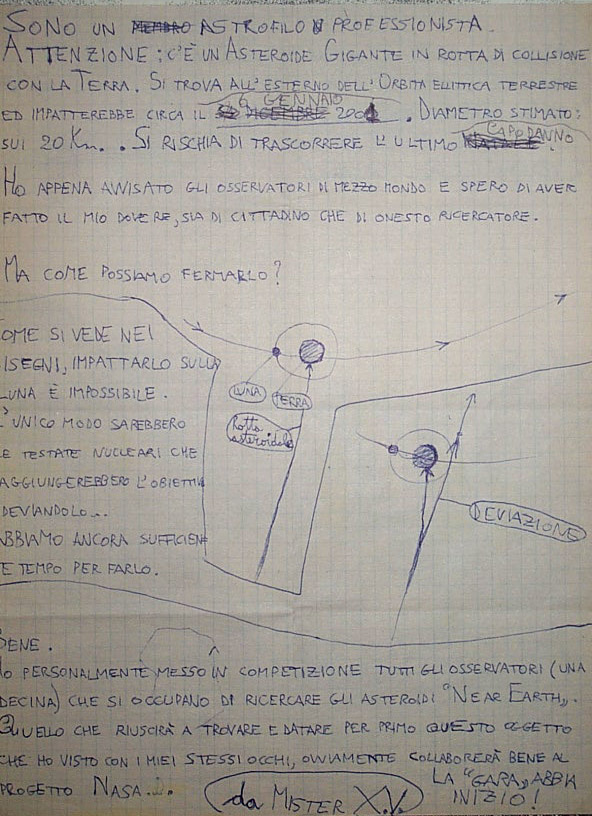 SONO UN MEMBRO ASTROFILO PROFESSIONISTA.
ATTENZIONE: C'È UN ASTEROIDE GIGANTE IN ROTTA DI COLLISIONE
CON LA TERRA. SI TROVA ALL'ESTERNO DELL'ORBITA ELLITTICA TERRESTRE
6 GENNAIO
ED IMPATTEREBBE CIRCA IL DICEMBRE 2001. DIAMETRO STIMATO:
CAPODANNO
SUI 20 Km.. SI RISCHIA DI TRASCORRERE L'ULTIMO NATALE!
HO APPENA AVVISATO GLI OSSERVATORI DI MEZZO MONDO E SPERO DI AVER
FATTO IL MIO DOVERE, SIA DI CITTADINO CHE DI ONESTO RICERCATORE.
MA COME POSSIAMO FERMARLO?
OME SI VEDE NEI
ISEGNI, IMPATTARLO SULLA
LUNA È IMPOSSIBILE.
L'UNICO MODO SAREBBERO
LE TESTATE NUCLEARI CHE
AGGIUNGEREBBERO L'OBIETTIV
DEVIANDOLO...
ABBIAMO ANCORA SUFFICIEN
E TEMPO PER FARLO.
LUNA
TERRA
Rotta
asteroidale
DEVIAZIONE
BENE.
HO PERSONALMENTE MESSO IN COMPETIZIONE TUTTI GLI OSSERVATORI (UNA
DECINA) CHE SI OCCUPANO DI RICERCARE GLI ASTEROIDI "NEAR EARTH".
QUELLO CHE RIUSCIRÀ A TROVARE E DATARE PER PRIMO QUESTO OGGETTO
CHE HO VISTO CON I MIEI STESSI OCCHI, OVVIAMENTE COLLABORERÀ BENE AL
PROGETTO NASA...
LA "GARA" ABBIA
INIZIO!
da MISTER X.V.